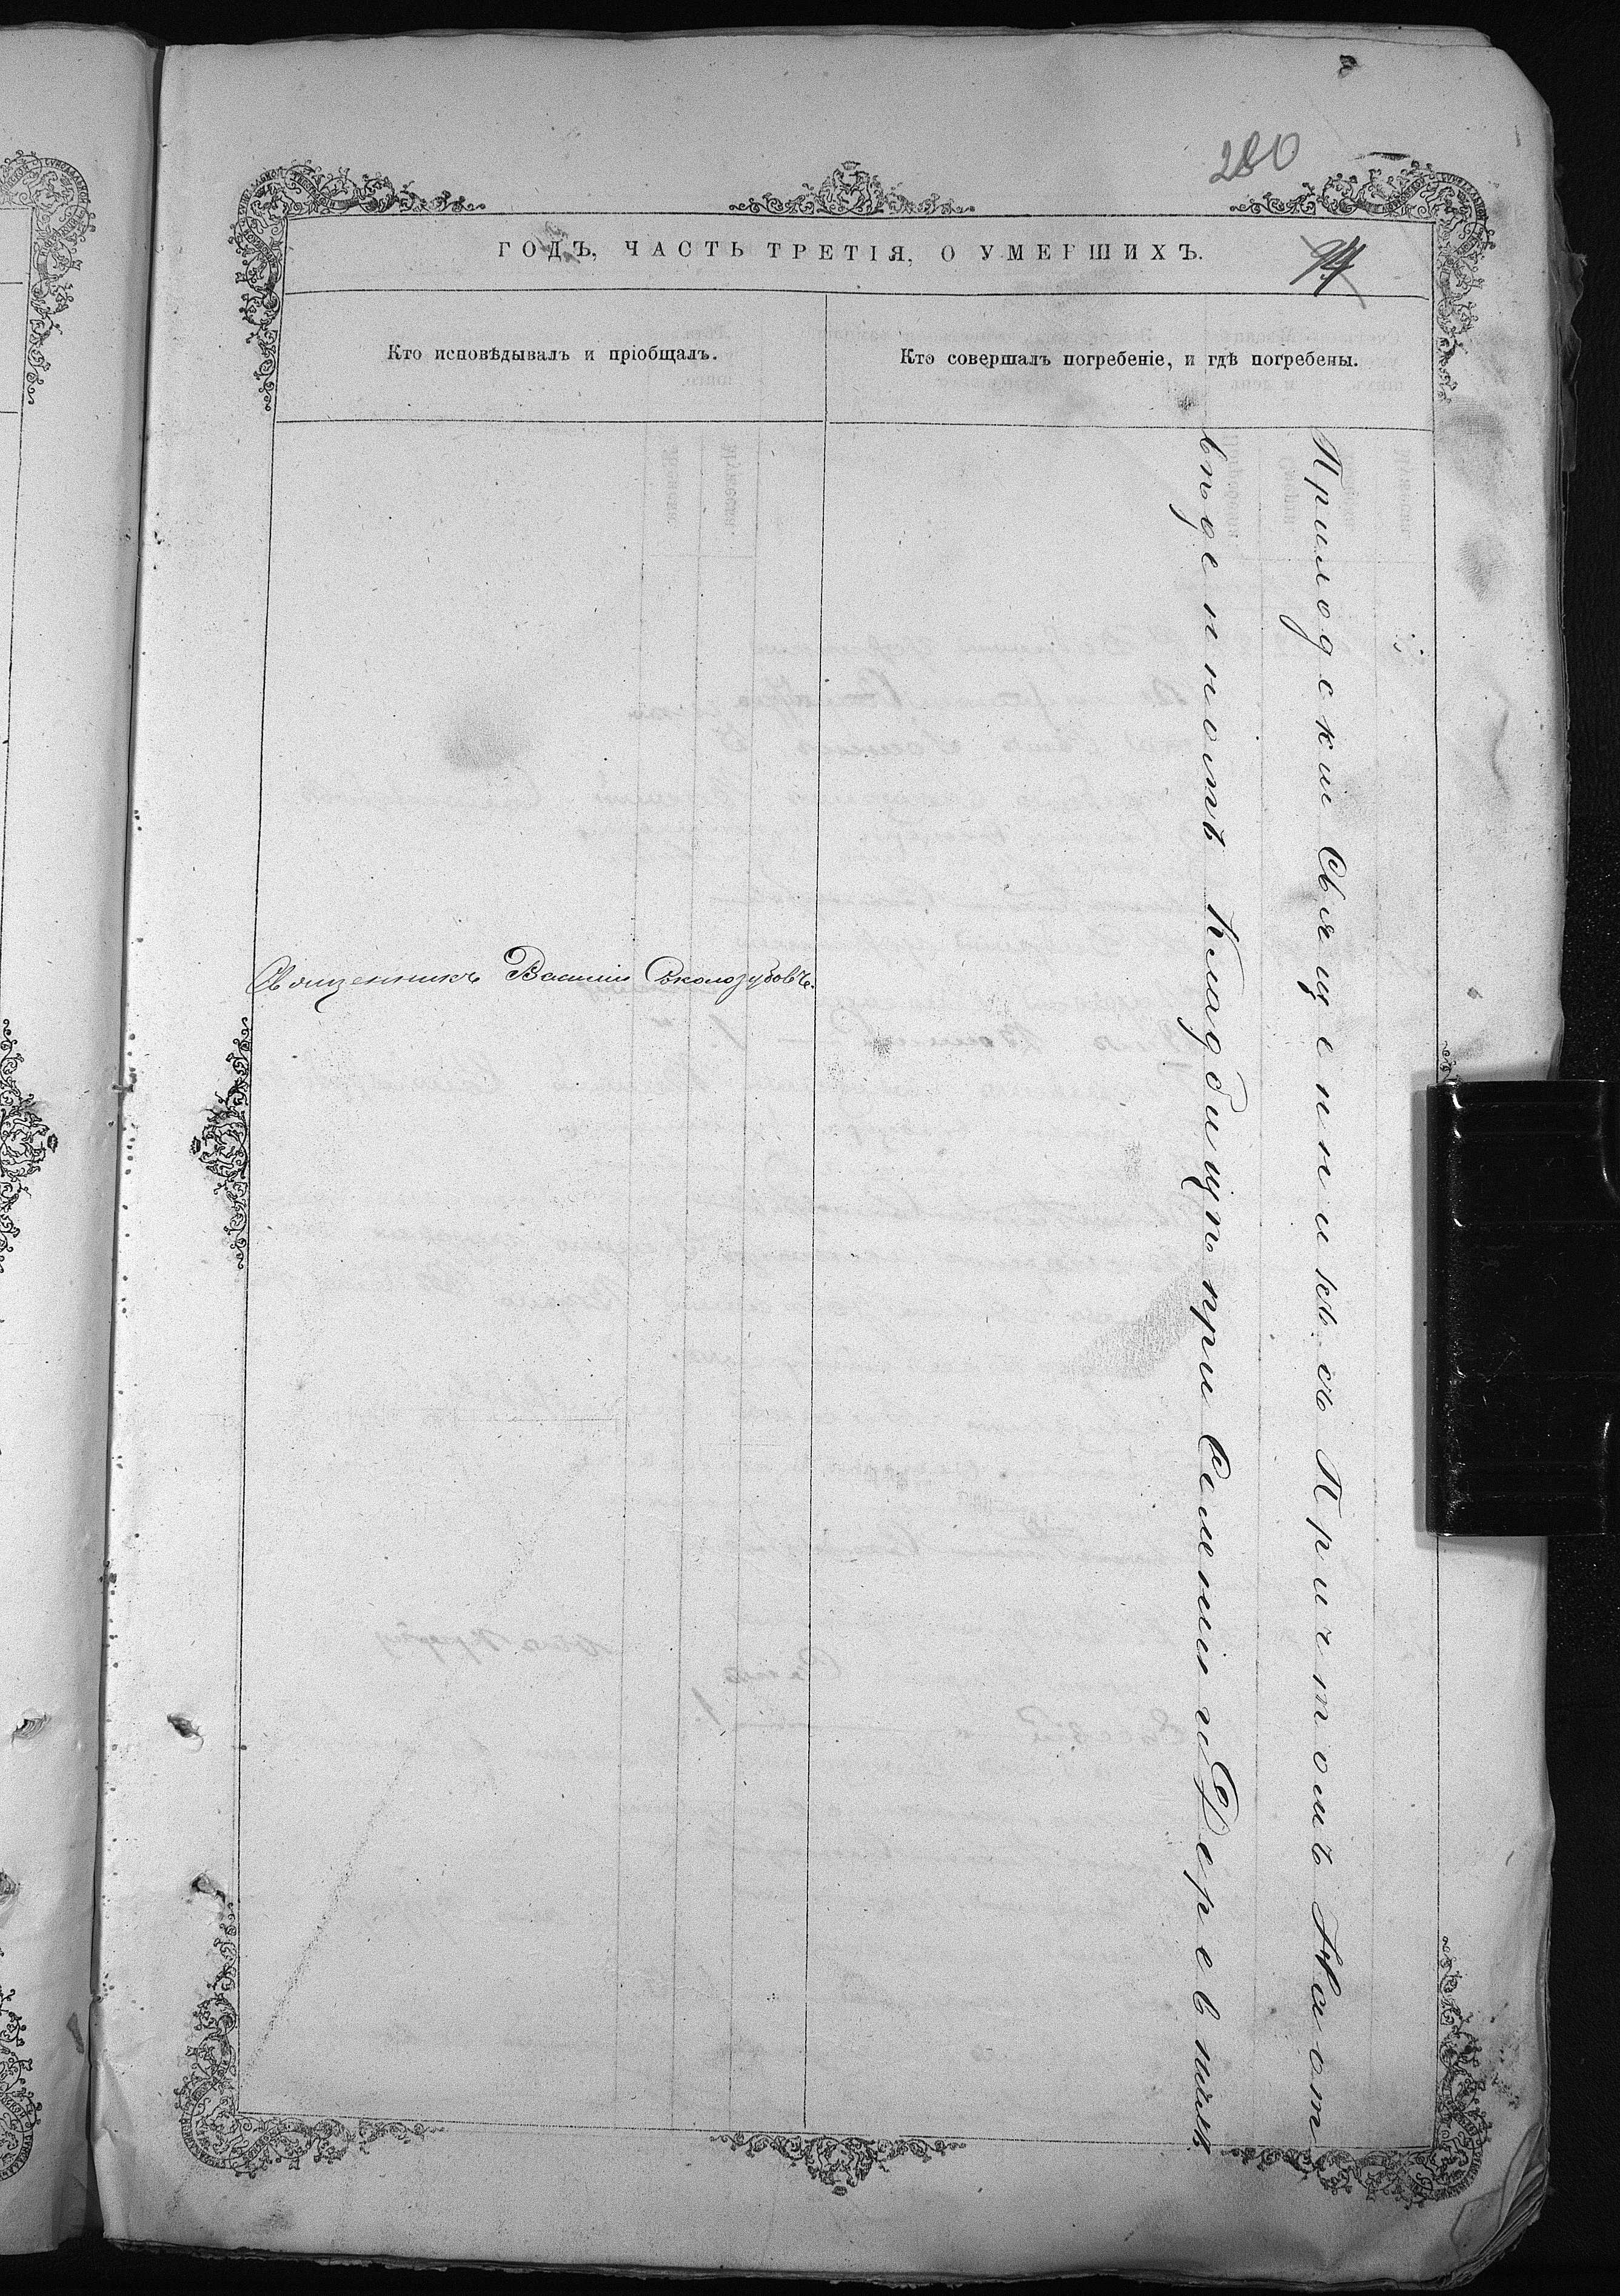 280
ГОДЪ, ЧАСТЬ ТРЕТІЯ, О УМЕРШИХЪ.
Кто исповѣдывалъ и пріобщалъ.
Кто совершалъ погребеніе, и гдѣ погребены.
Священникъ Василій Околозубовъ.
Приходскій Священникъ съ Причтомъ На от
веденномъ Кладбищѣ при Селеніи и Деревнѣ